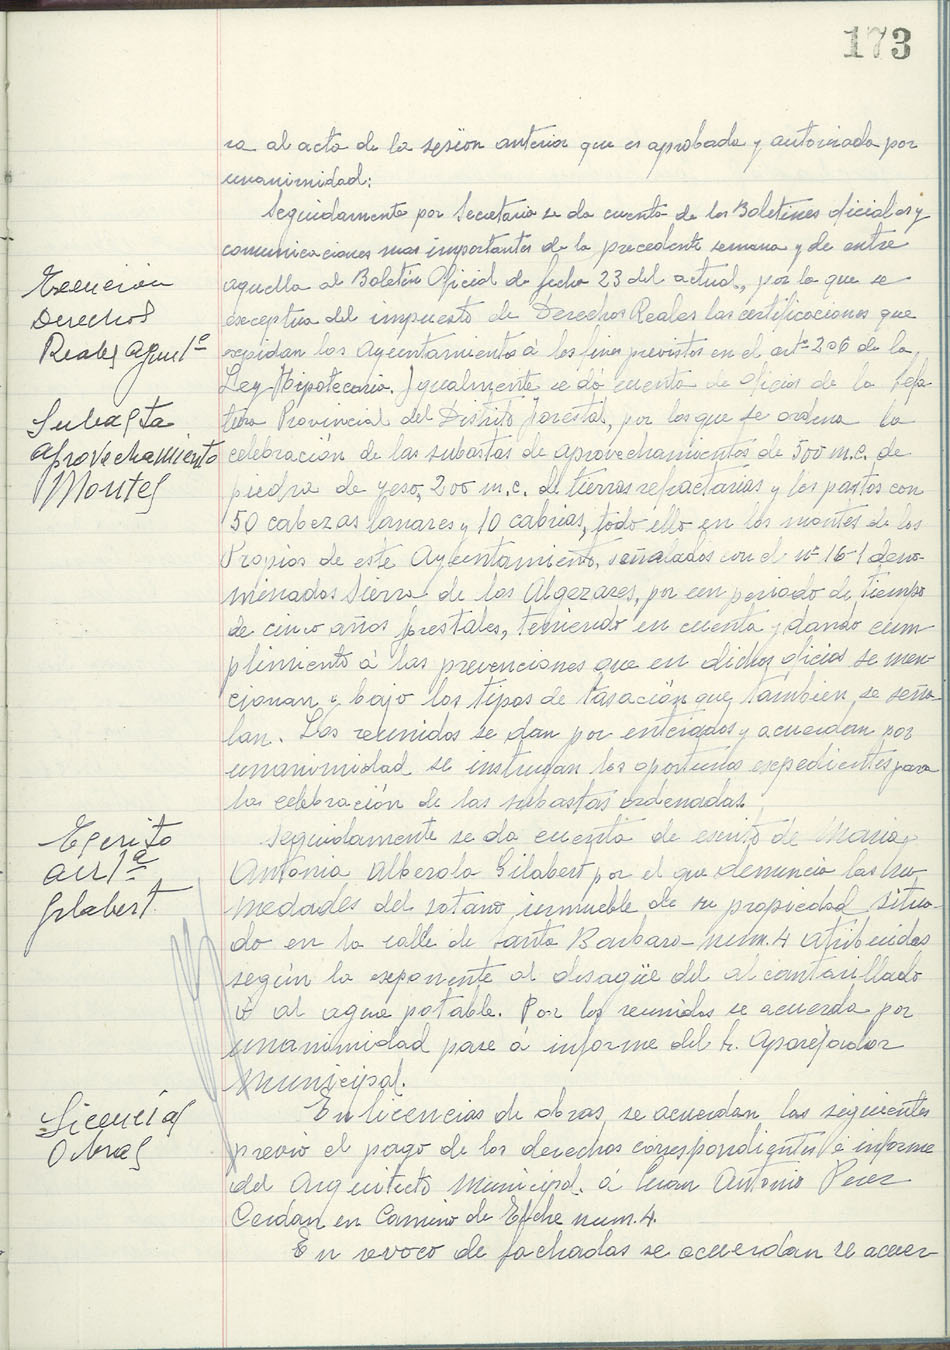 173
ra al acta de la sesión anterior que es aprobada y autorizada por
unanimidad:
Seguidamente por Secretaria se da cuenta de los Boletines oficiales y
comunicaciones mas importantes de la precedente semana y de entre
aquella al Boletín Oficial de fecha 23 del actual, por la que se
Execcion
Derechos
Reales Ayunt.º
exceptua del impuesto de Derechos Reales las certificaciones que
expidan los Ayuntamiento á los fines previstos en el artº 206 de la
Ley Hipotecaria. Igualmente se dá cuenta de oficios de la Jefa-
Subasta
aprovechamiento
Montes
tura Provincial del Distrito Forestal, por los que se ordena la
celebración de las subastas de aprovechamientos de 500 m.c. de
piedra de yeso, 200 m.c. de tierras refractarias y los pastos con
50 cabezas lanares y 10 cabrias, todo ello en los montes de los
Propios de este Ayuntamiento, señalados con el nº 16-1 deno-
minados Sierra de los Algezares, por un periodo de tiempo
de cinco años forestales, teniendo en cuenta y dando cum
plimiento á las prevenciones que en dichos oficios se men-
cionan y bajo los tipos de tasación que tambien se seña-
lan. Los reunidos se dan por enterados y acuerdan por
unanimidad se instruyan los oportunos expedientes para
la celebración de las subastas ordenadas.
Escrito
Gilabert
Seguidamente se da cuenta de escrito de Maria
Antonia Alberola Gilabert por el que denuncia las hu-
medades del sotano inmueble de su propiedad situa-
do en la calle de Santa Barbara num. 4 atribuidas
según la exponente al desagüe del alcantarillado
ó al agua potable. Por los reunidos se acuerda por
unanimidad pase á informe del Sr. Aparejador
Municipal.
Licencias
Obras
En licencias de obras se acuerdan las siguientes
previo el pago de los derechos correspondientes é informe
del Arquitecto Municipal. á Juan Antonio Perez
Cerdan en Camino de Elche num. 4.
En revoco de fachadas se acuerdan se acuer